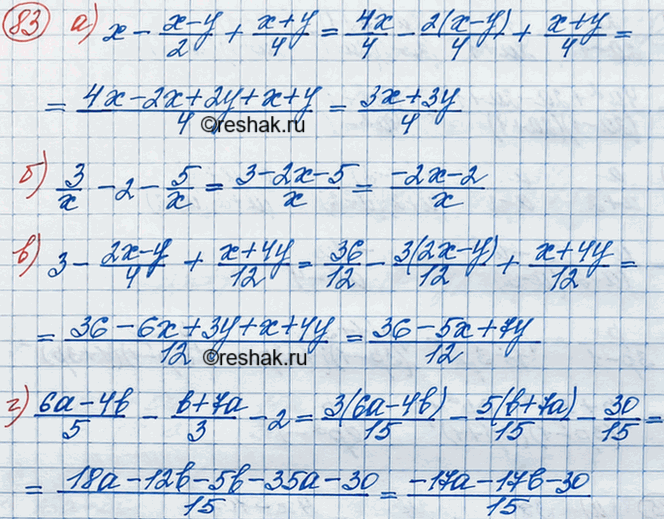 83 а) x - (x-y)/2 + (x+y)/4 = 4x/4 - 2(x-y)/4 + (x+y)/4 =
= (4x-2x+2y+x+y)/4 = (3x+3y)/4
©reshak.ru
б) 3/x - 2 - 5/x = (3-2x-5)/x = (-2x-2)/x
в) 3 - (2x-y)/4 + (x+4y)/12 = 36/12 - 3(2x-y)/12 + (x+4y)/12 =
= (36-6x+3y+x+4y)/12 = (36-5x+7y)/12
©reshak.ru
г) (6a-4b)/5 - (b+7a)/3 - 2 = 3(6a-4b)/15 - 5(b+7a)/15 - 30/15 =
= (18a-12b-5b-35a-30)/15 = (-17a-17b-30)/15